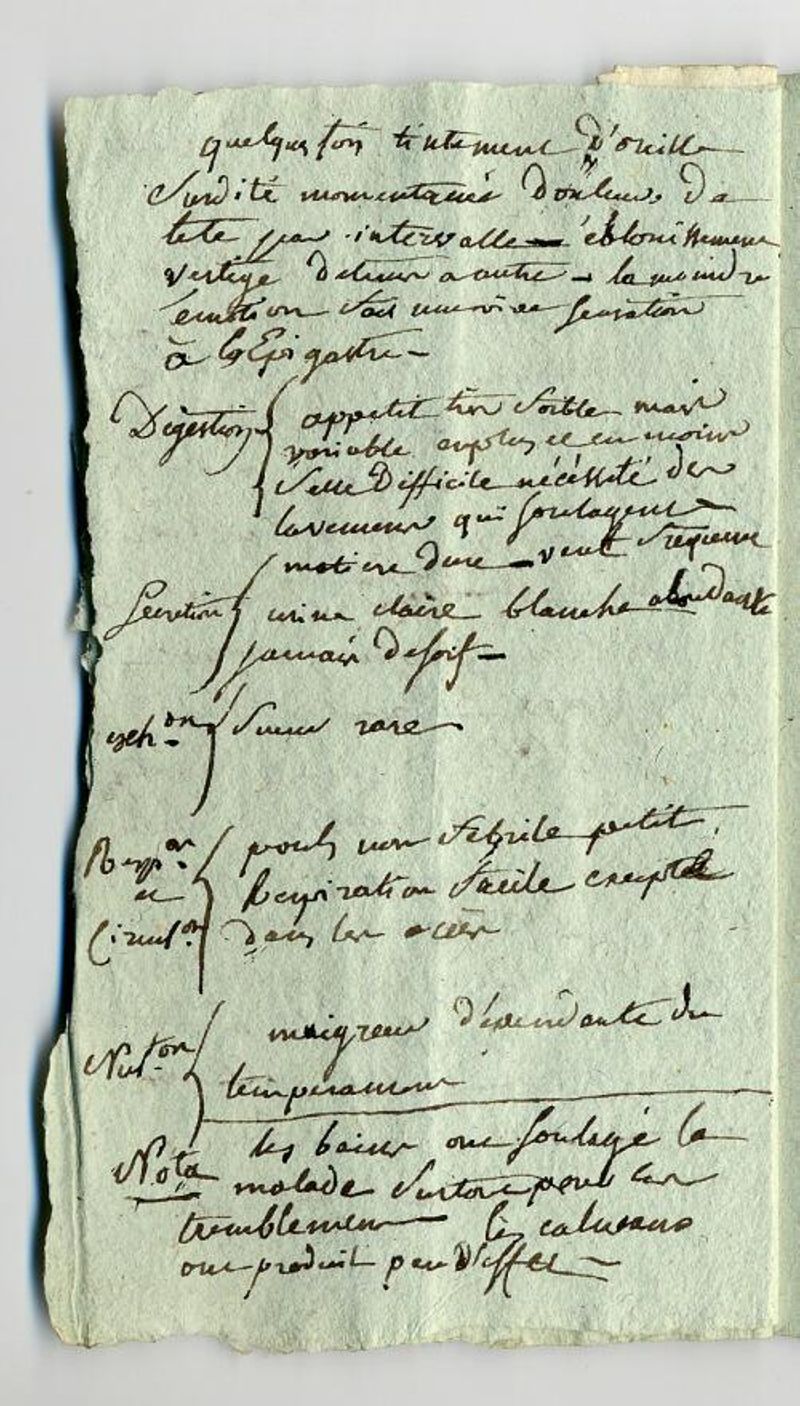 quelques fois tintement d'oreille
surdité momentanée Douleurs De
tete par intervalle — éblouissement
vertige de tems a autre — la moindre
émotion fait une vive sensation
à l'Epigastre —
Digestion { appetit très foible mais
variable en plus et en moins
selle Difficile nécéssité des
lavemens qui soulagent —
matiere dure — vent frequent
Secretion { urine claire blanche abondante
jamais de soif —
exh.on { sueur rare
Resp.on { pouls non febrile petit,
et Respiration facile excepté
Circul.on dans les accès
Nut.on { maigreur dépendante du
temperament
Nota les bains ont soulagé la
malade surtout pour les
tremblemens les calmans
ont produit peu d'effet —